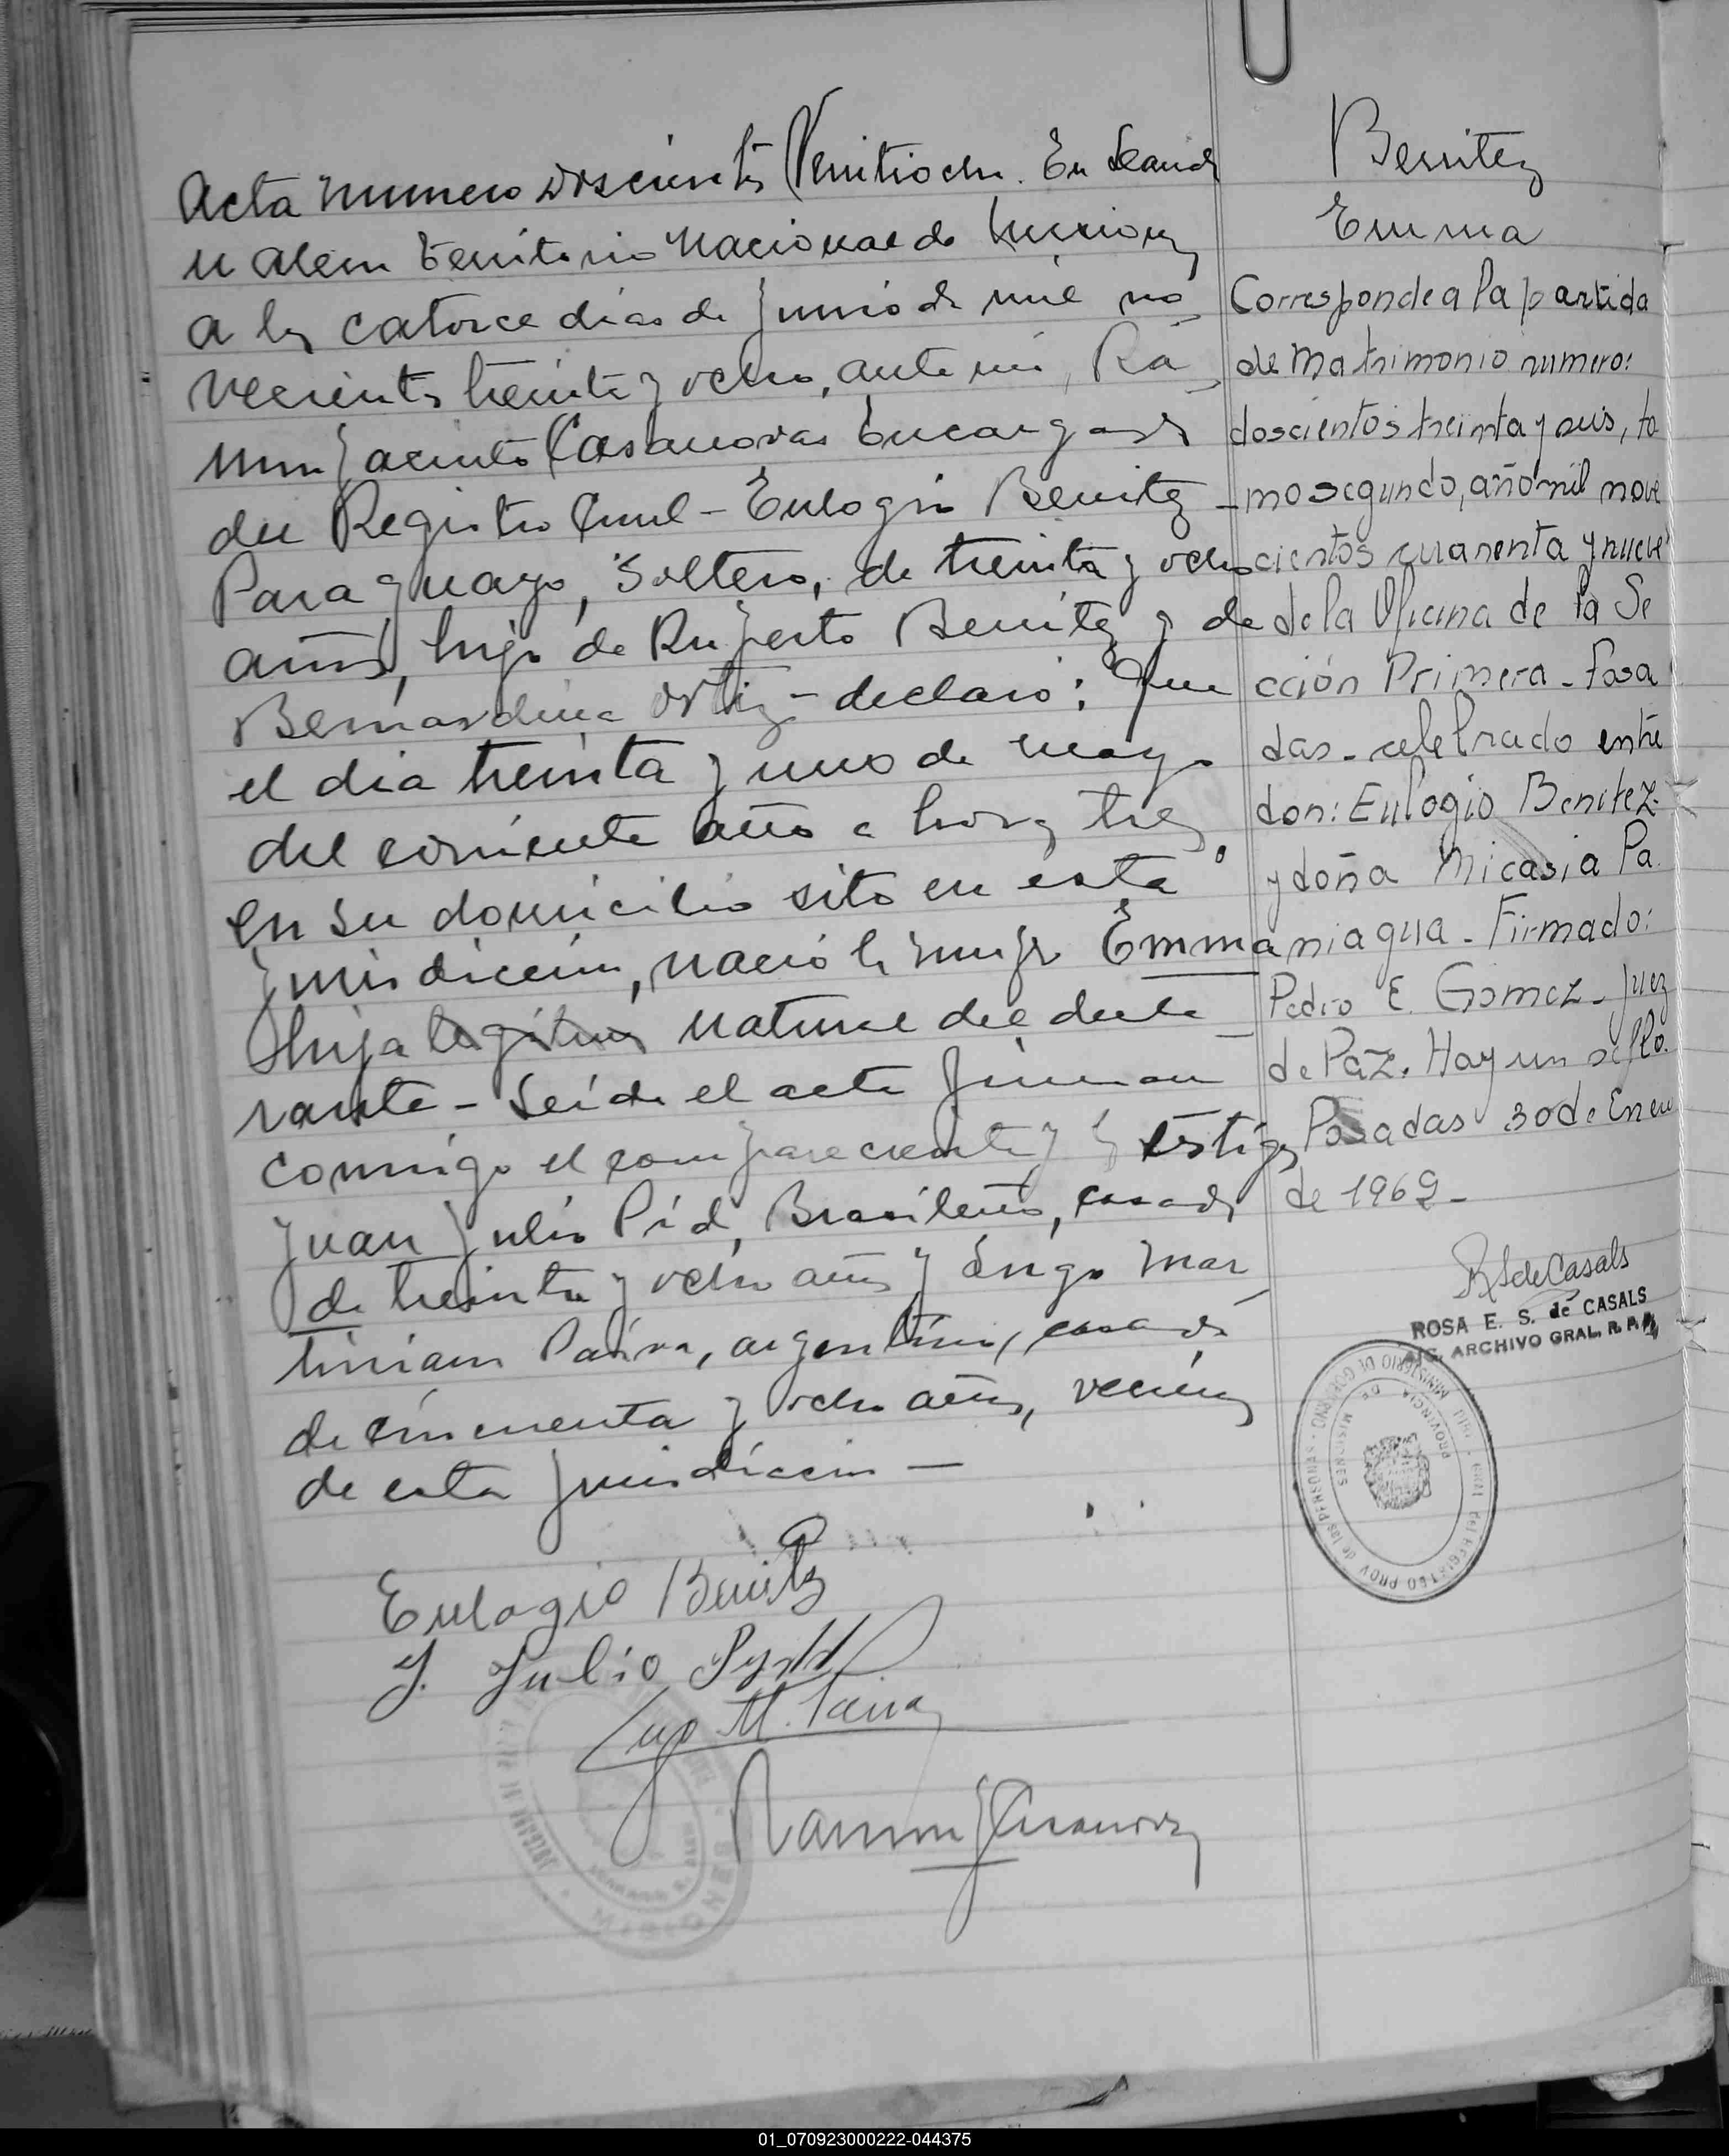 Acta numero doscientos Veintiocho. En Leandr
n Alem Territorio Nacional de Misiones
a los catorce dias de Junio de mil no
vecientos treinta y ocho, ante mi, Ra
mon Jacinto Casanovas Encargado
del Registro Civil - Eulogio Benitez -
Paraguayo, Soltero, de treinta y ocho
años, hijo de Ruperto Benitez y de
Bernardina Ortiz - declaro: Que
el dia treinta y uno de mayo
del corriente año a horas tres
en su domicilio sito en esta
Jurisdiccion, nació la mujer Emma
hija legitima natural del decla
rante - Leida el acta firman
conmigo el compareciente y los testigos
Juan Julio Pid, Brasilero, casado
de treinta y ocho años y Lugo Mar
tiniam Paiva, argentino, casado
de cincuenta y ocho años, vecinos
de esta Jurisdiccion -
Eulogio Benitez
J. Julio
Lugo M. Paiva
Ramon J Casanovas
Benitez
Emma
Corresponde a la partida
de Matrimonio numero:
doscientos treinta y seis, to
mo segundo, año mil nove
cientos cuarenta y nueve
de la Oficina de la Se
cción Primera - Posa
das - celebrado entre
don: Eulogio Benitez
y doña Micasia Pa
niagua - Firmado:
Pedro E. Gomez - Juez
de Paz. Hay un sello.
Posadas 30 de Enero
de 1969 -
RSdeCasals
ROSA E. S. de CASALS
ARCHIVO GRAL. R. P.
MINISTERIO DE GOBIERNO
PROVINCIA DE MISIONES
del REGISTRO PROV. de las PERSONAS
MISIONES
01_070923000222-044375